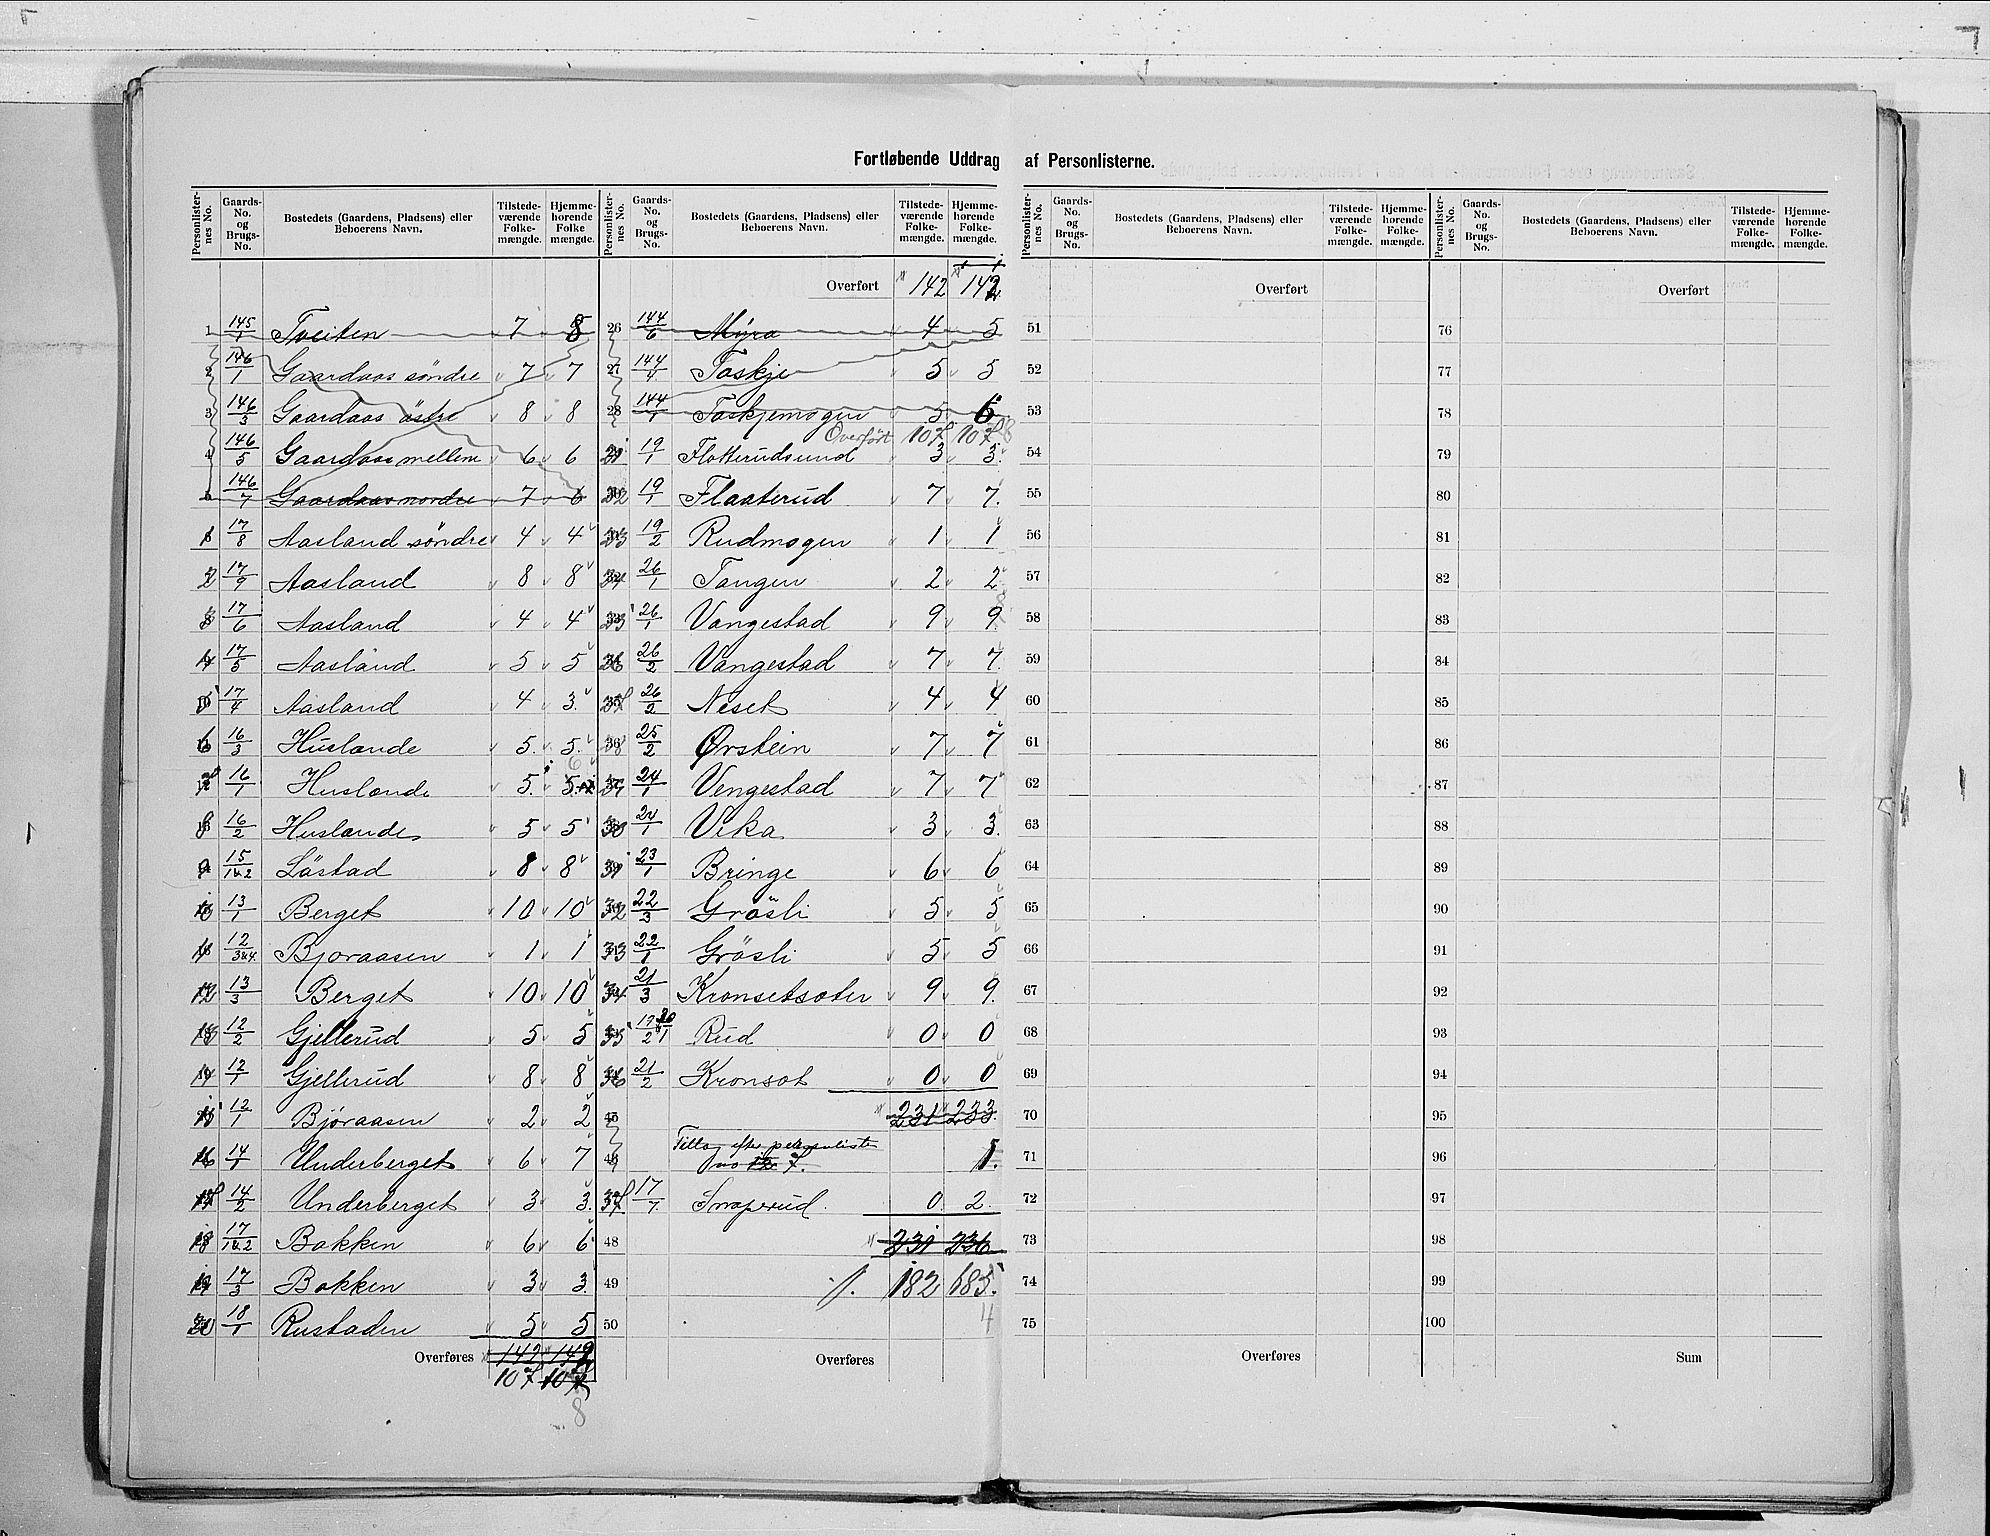 Fortløbende Uddrag af Personlisterne.
Personlister-nes No. Gaards-No. og Brugs-No. Bostedets (Gaardens, Pladsens) eller Beboerens Navn. Tilstede-værende Folke-mængde. Hjemme-hørende Folke mængde.
1 145/1 Tveiten 7 8
2 146/1 Gaardaas söndre 7 7
3 146/3 Gaardaas östre 8 8
4 146/5 Gaardaas mellem 6 6
5 146/7 Gaardaas nordre 7 6
1 17/8 Aasland söndre 4 4
2 17/9 Aasland 8 8
3 17/6 Aasland 4 4
4 17/5 Aasland 5 5
5 17/4 Aasland 4 3
6 16/3 Huslande 5 5
7 16/1 Huslande 5 5
8 16/2 Huslande 5 5
9 15/1&2 Löstad 8 8
10 13/1 Berget 10 10
11 12/3&4 Bjoraasen 1 1
12 13/3 Berget 10 10
13 12/2 Gjellerud 5 5
14 12/1 Gjellerud 8 8
15 12/1 Björaasen 2 2
16 14/1 Underberget 6 7
17 14/2 Underberget 3 3
18 17/1&2 Bakken 6 6
19 17/3 Bakken 3 3
20 18/1 Rustaden 5 5
Overføres 142
107
8
Personlister-nes No. Gaards-No. og Brugs-No. Bostedets (Gaardens, Pladsens) eller Beboerens Navn. Tilstede-værende Folke-mængde. Hjemme-hørende Folke-mængde.
Overført 142 142
26 144/6 Myra 4 5
27 144/4 Taskje 5 5
28 144/1 Taskjemogen 5 6
Overført 107 107 8
21 19/1 Flatterudsund 3 3
22 19/1 Flaaterud 7 7
23 19/2 Rudmogen 1 1
24 26/1 Tangen 2 2
25 26/1 Vangestad 9 9
26 26/2 Vangestad 7 7
27 26/2 Neset 4 4
28 25/2 Ørstein 7 7
29 24/1 Vengestad 7 7
30 24/1 Vika 3 3
31 23/1 Bringe 6 6
32 22/3 Grösli 5 5
33 22/1 Grösli 5 5
34 21/3 Kronsetsæter 9 9
35 Rud 0 0
36 21/2 Kronsæt 0 0
231 233
Tillæg efter personliste
no 7. 1.
37 17/7 Snaperud 0 2
48 231 236
49 182 183
4
50
Overføres
Personlister-nes No. Gaards-No. og Brugs-No. Bostedets (Gaardens, Pladsens) eller Beboerens Navn. Tilstede-værende Folke-mængde. Hjemme-hørende Folke-mængde.
Overført
51
52
53
54
55
56
57
58
59
60
61
62
63
64
65
66
67
68
69
70
71
72
73
74
75
Overføres
Personlister-nes No. Gaards-No. og Brugs-No. Bostedets (Gaardens, Pladsens) eller Beboerens Navn. Tilstede-værende Folke-mængde. Hjemme-hørende Folke-mængde.
Overført
76
77
78
79
80
81
82
83
84
85
86
87
88
89
90
91
92
93
94
95
96
97
98
99
100
Sum